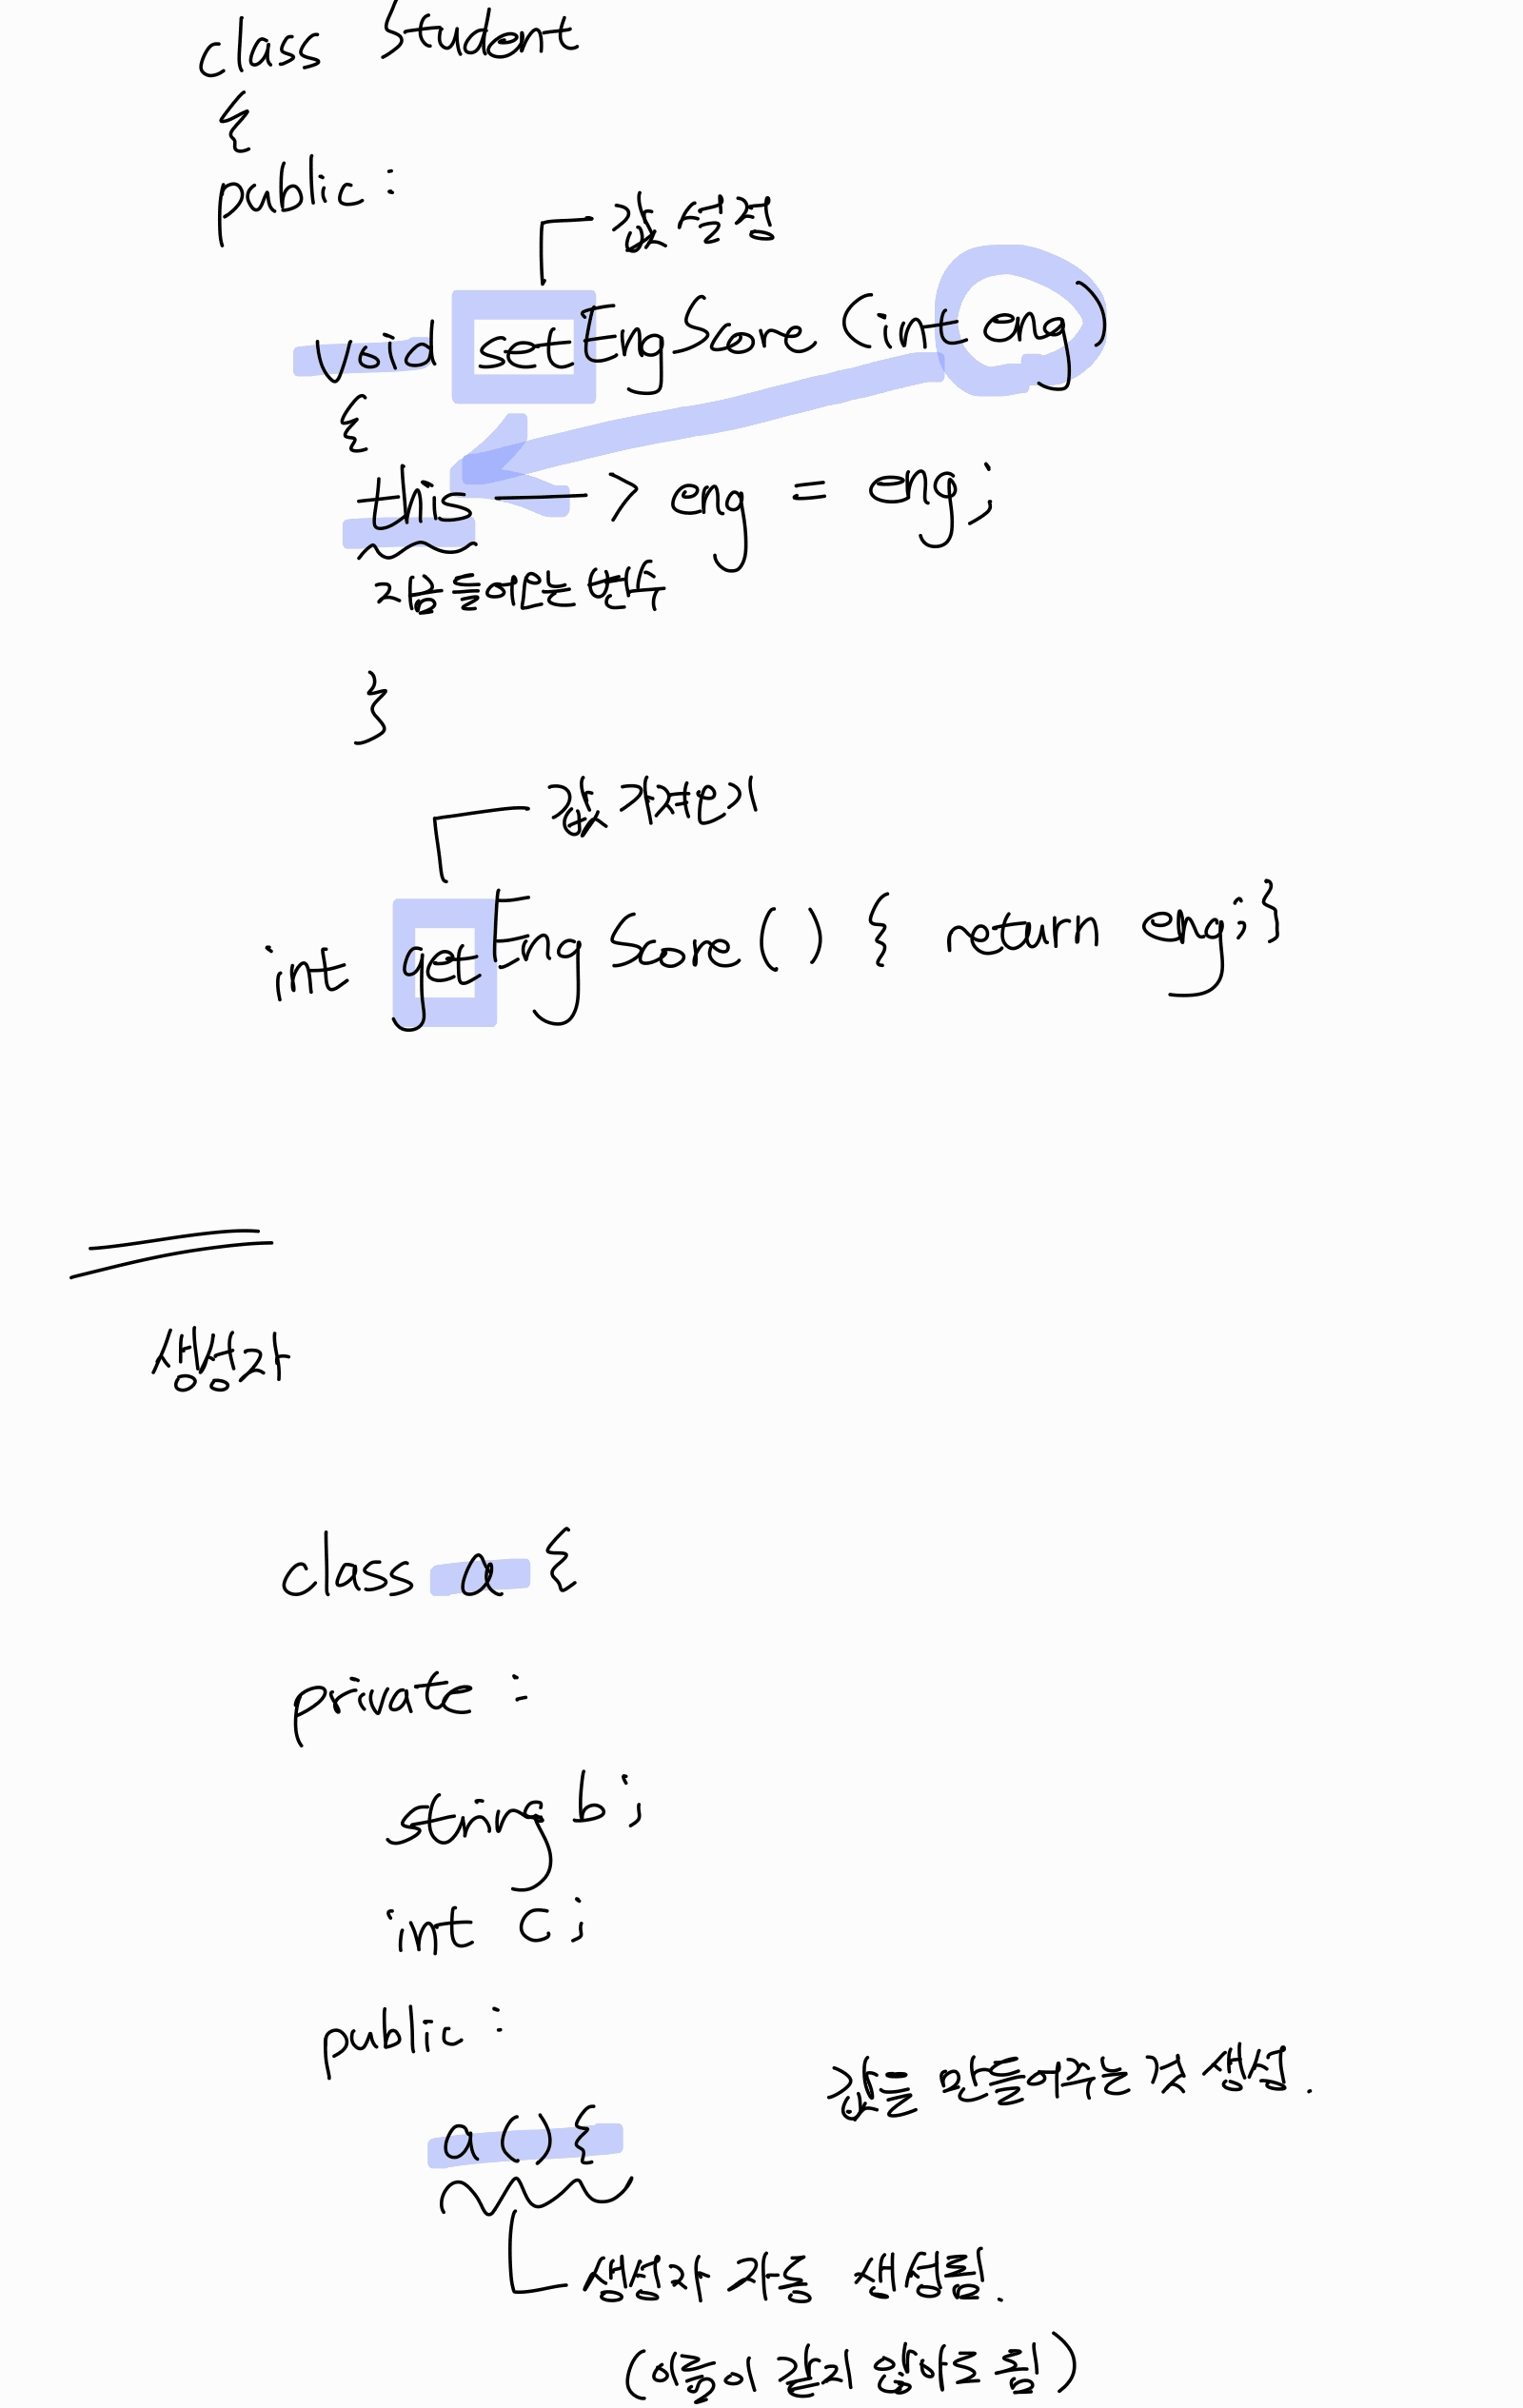 class Student
{
public :
값 수정
void setEngScore (int eng)
{
this —> eng = eng;
지금 들어온 변수
}
값 가져오기
int getEngScore () { return eng; }
생성자
class a {
private :
string b ;
int c ;
public :
값을 만들어주는 것 생성 .
a () {
생성자 자동 생성됨 .
(이름이 같지 않아도 됨)